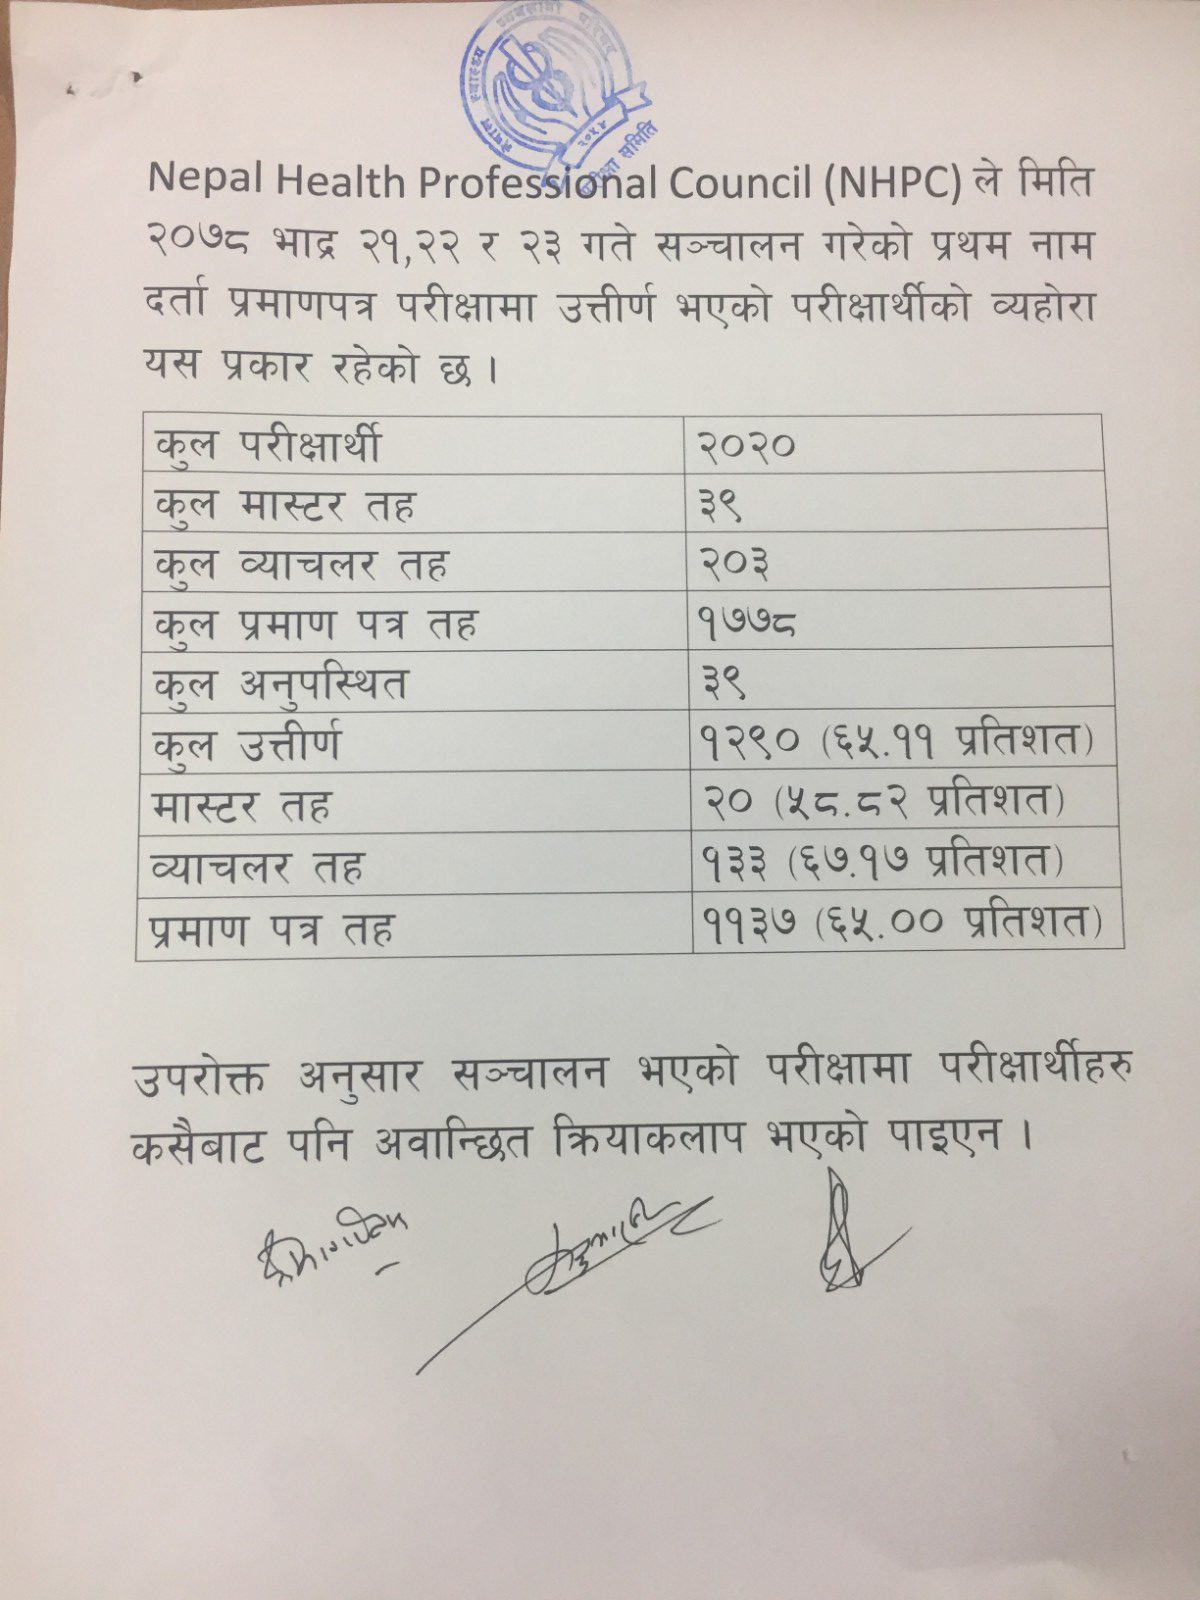 नेपाल स्वास्थ्य व्यवसायी परिषद
२०५४
परीक्षा समिति
Nepal Health Professional Council (NHPC) ले मिति
२०७८ भाद्र २१,२२ र २३ गते सञ्चालन गरेको प्रथम नाम
दर्ता प्रमाणपत्र परीक्षामा उत्तीर्ण भएको परीक्षार्थीको व्यहोरा
यस प्रकार रहेको छ ।
कुल परीक्षार्थी २०२०
कुल मास्टर तह ३९
कुल व्याचलर तह २०३
कुल प्रमाण पत्र तह १७७८
कुल अनुपस्थित ३९
कुल उत्तीर्ण १२९० (६५.११ प्रतिशत)
मास्टर तह २० (५८.८२ प्रतिशत)
व्याचलर तह १३३ (६७.१७ प्रतिशत)
प्रमाण पत्र तह ११३७ (६५.०० प्रतिशत)
उपरोक्त अनुसार सञ्चालन भएको परीक्षामा परीक्षार्थीहरु
कसैबाट पनि अवान्छित क्रियाकलाप भएको पाइएन ।